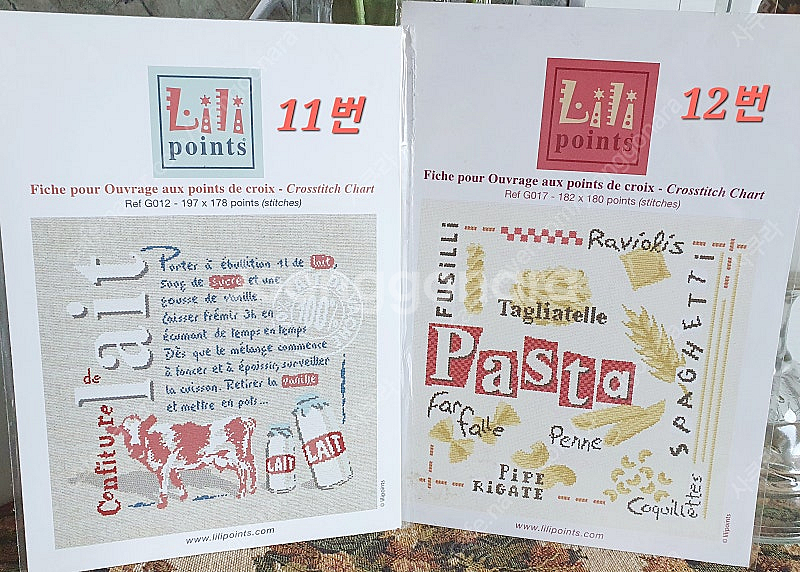 Lili
points
11번
Fiche pour Ouvrage aux points de croix - Crosstitch Chart
Ref G012 - 197 x 178 points (stitches)
Confiture de lait
Porter à ébullition 1l de lait,
sucre et une
gousse de vanille.
Laisser frémir 3h en
écumant de temps en temps
Dès que le mélange commence
à foncer et à épaissir, surveiller
la cuisson. Retirer la vanille
et mettre en pots...
LAIT
LAIT
© lilipoints
www.lilipoints.com
Lili
points
12번
Fiche pour Ouvrage aux points de croix - Crosstitch Chart
Ref G017 - 182 x 180 points (stitches)
FUSILLI
Raviolis
Tagliatelle
SPAGHETTI
Pasta
Farfalle
Penne
PIPE
RIGATE
Coquillettes
© lilipoints
www.lilipoints.com